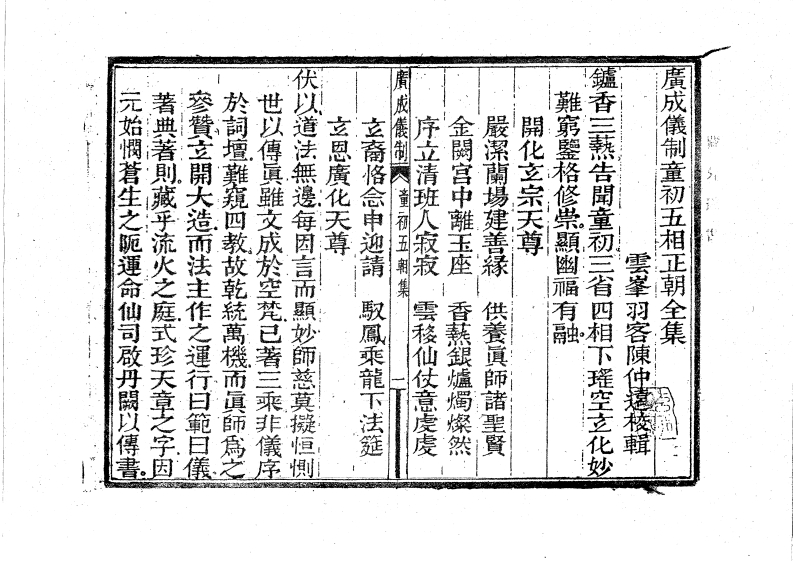 廣成儀制童初五相正朝全集
雲峯羽客陳仲遠校輯
鑪香三熱告聞童初三省四相下瑤空玄化妙
難窮鑒格修崇顯幽福有融
開化玄宗天尊
嚴潔蘭場建善緣 供養眞師諸聖賢
金闕宫中離玉座 香熱銀爐燭燦然
序立清班人寂寂 雲移仙仗意虔虔
廣成儀制 童初五朝集 一
玄裔恪念申迎請 馭鳳乘龍下法筵
玄恩廣化天尊
伏以道法無邊每因言而顯妙師慈莫擬恒惻
世以傳眞雖文成於空梵己著三乘非儀序
於詞壇難窺四教故乾統萬機而眞師爲之
參贊玄開大造而法主作之運行曰範曰儀
著典著則藏乎流火之庭式珍天章之字因
元始憫蒼生之軛運命仙司啟丹闕以傳書